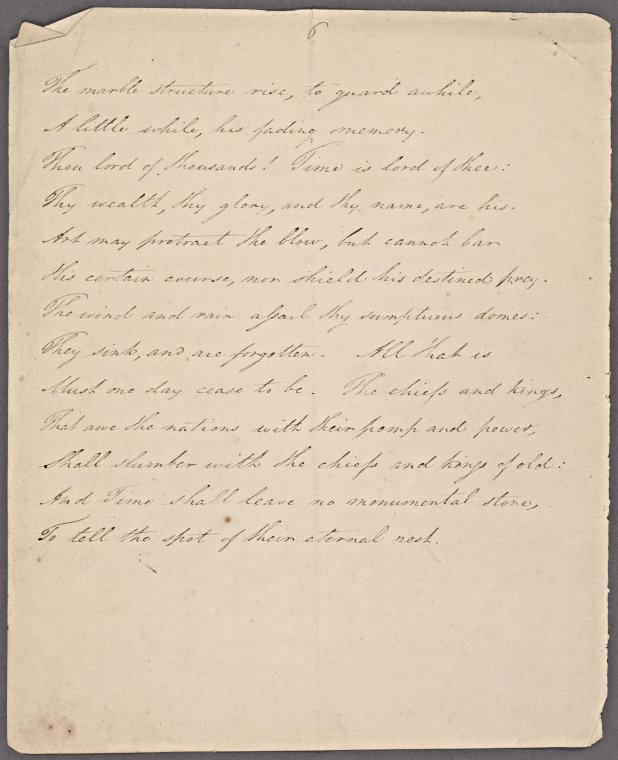 6
The marble structure rise, to guard awhile,
A little while, his fading memory.
Thou lord of thousands! Time is lord of thee:
Thy wealth, thy glory, and thy name, are his.
Art may protract the blow, but cannot bar
His certain course, nor shield his destined prey.
The wind and rain assail thy sumptuous domes:
They sink, and are forgotten. All that is
Must one day cease to be. The chiefs and kings,
That awe the nations with their pomp and power,
Shall slumber with the chiefs and kings of old:
And Time shall leave no monumental stone,
To tell the spot of their eternal rest.